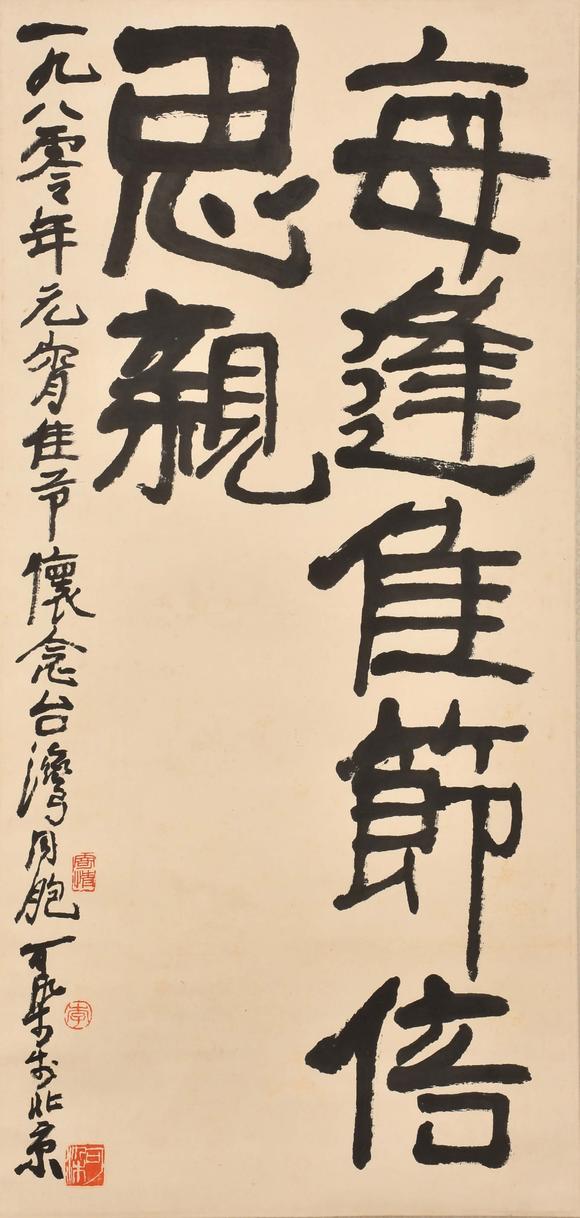 每逢佳節倍
思親
一九八零年元宵佳节懷念台灣同胞可染於北京
李
可染